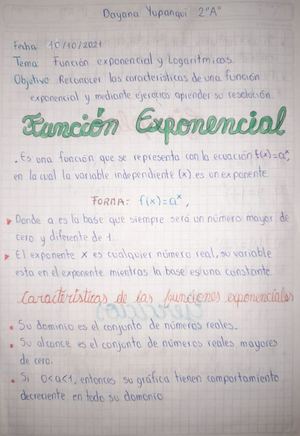 Dayana Yupanqui 2"A"
Fecha: 10/10/2021
Tema: Función exponencial y Logaritmicas.
Objetivo: Reconocer las características de una función
exponencial y mediante ejercicios aprender su resolución.
Función Exponencial
. Es una función que se representa con la ecuación f(x)=aˣ,
en la cual la variable independiente (x) es un exponente.
FORMA: f(x)=aˣ,
Donde a es la base que siempre será un número mayor de
cero y diferente de 1.
El exponente x es cualquier número real, su variable
esta en el exponente mientras la base es una constante.
Características de las funciones exponenciales
• Su dominio es el conjunto de números reales.
• Su alcance es el conjunto de números reales mayores
de cero.
• Si 0<a<1, entonces su gráfica tienen comportamiento
decreciente en todo su dominio